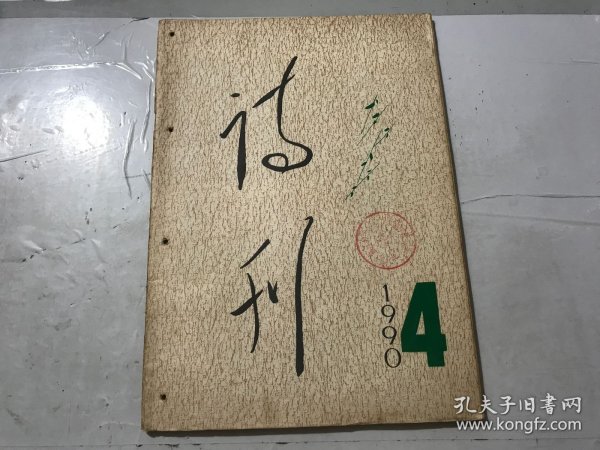 诗刊
1990
4
孔夫子旧书网
www.kongfz.com